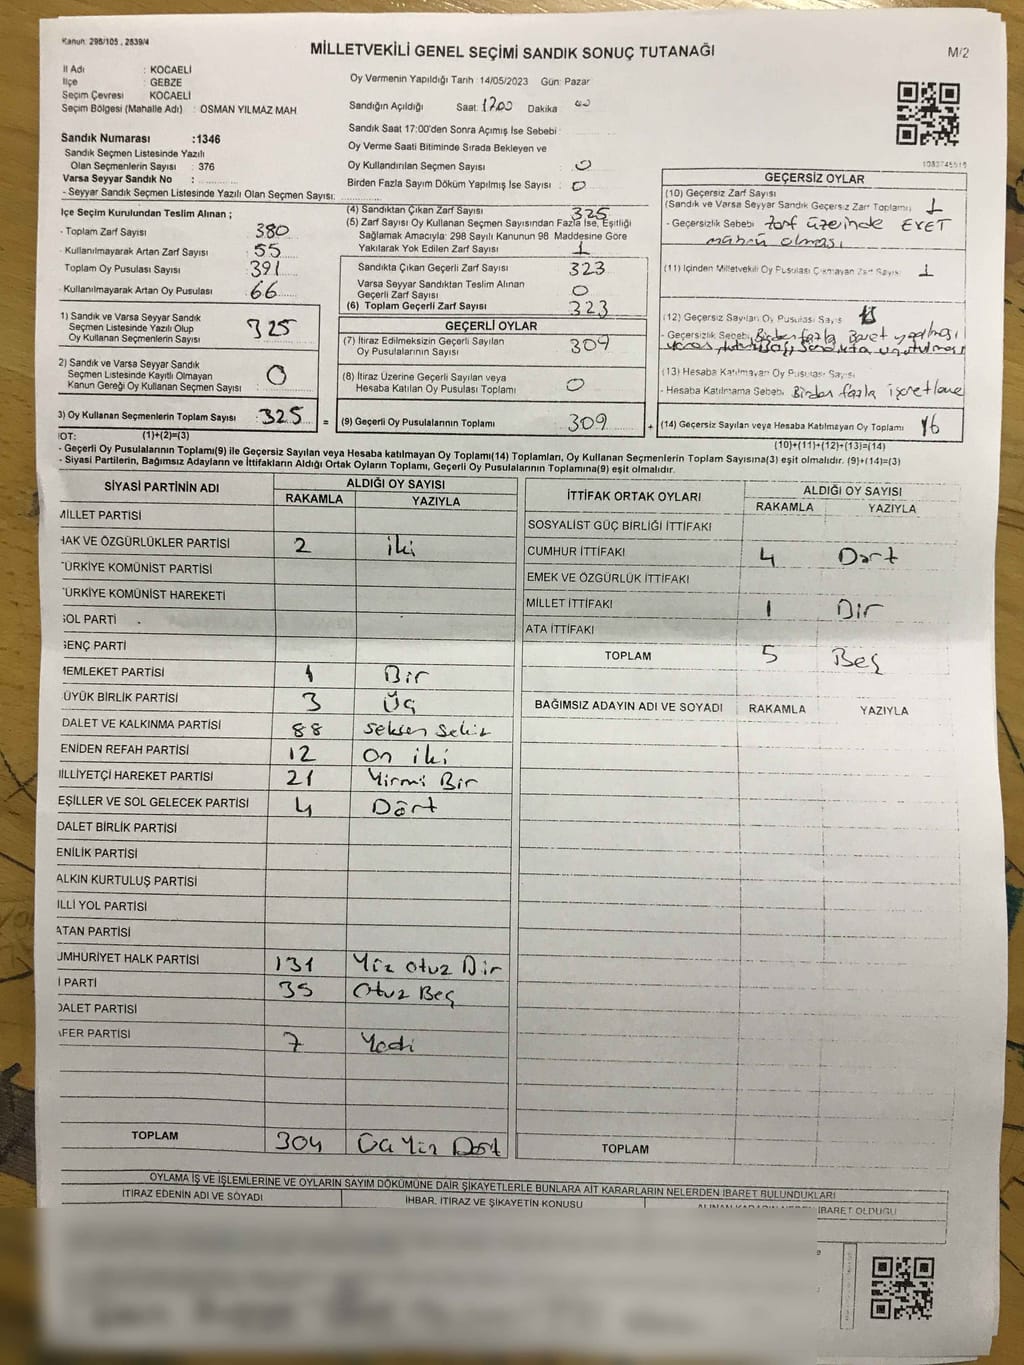 Kanun: 298/105, 2839/4
MİLLETVEKİLİ GENEL SEÇİMİ SANDIK SONUÇ TUTANAĞI
M/2
İl Adı : KOCAELİ
İlçe : GEBZE
Seçim Çevresi : KOCAELİ
Seçim Bölgesi (Mahalle Adı) : OSMAN YILMAZ MAH
Oy Vermenin Yapıldığı Tarih :14/05/2023 Gün: Pazar
Sandığın Açıldığı Saat: 17.00 Dakika 00
Sandık Saat 17:00'den Sonra Açımış İse Sebebi :
Oy Verme Saati Bitiminde Sırada Bekleyen ve
Oy Kullandırılan Seçmen Sayısı : 0
Birden Fazla Sayım Döküm Yapılmış İse Sayısı : 0
Sandık Numarası :1346
Sandık Seçmen Listesinde Yazılı
Olan Seçmenlerin Sayısı : 376
Varsa Seyyar Sandık No :
- Seyyar Sandık Seçmen Listesinde Yazılı Olan Seçmen Sayısı:
İlçe Seçim Kurulundan Teslim Alınan ;
- Toplam Zarf Sayısı 380
- Kullanılmayarak Artan Zarf Sayısı 55
Toplam Oy Pusulası Sayısı 391
- Kullanılmayarak Artan Oy Pusulası 66
1) Sandık ve Varsa Seyyar Sandık
Seçmen Listesinde Yazılı Olup
Oy Kullanan Seçmenlerin Sayısı 325
2) Sandık ve Varsa Seyyar Sandık
Seçmen Listesinde Kayıtlı Olmayan
Kanun Gereği Oy Kullanan Seçmen Sayısı 0
3) Oy Kullanan Seçmenlerin Toplam Sayısı 325
(1)+(2)=(3)
(4) Sandıktan Çıkan Zarf Sayısı 325
(5) Zarf Sayısı Oy Kullanan Seçmen Sayısından Fazla İse, Eşitliği
Sağlamak Amacıyla: 298 Sayılı Kanunun 98 Maddesine Göre
Yakılarak Yok Edilen Zarf Sayısı 1
Sandıkta Çıkan Geçerli Zarf Sayısı 323
Varsa Seyyar Sandıktan Teslim Alınan
Geçerli Zarf Sayısı 0
(6) Toplam Geçerli Zarf Sayısı 323
GEÇERLİ OYLAR
(7) İtiraz Edilmeksizin Geçerli Sayılan
Oy Pusulalarının Sayısı 309
(8) İtiraz Üzerine Geçerli Sayılan veya
Hesaba Katılan Oy Pusulası Toplamı 0
= (9) Geçerli Oy Pusulalarının Toplamı 309
1082745515
GEÇERSİZ OYLAR
(10) Geçersiz Zarf Sayısı
(Sandık ve Varsa Seyyar Sandık Geçersiz Zarf Toplamı) 1
- Geçersizlik Sebebi Zarf üzerinde EVET
mührü olması
(11) İçinden Milletvekili Oy Pusulası Çıkmayan Zarf Sayısı 1
(12) Geçersiz Sayılan Oy Pusulası Sayısı
- Geçersizlik Sebebi Birden fazla
(13) Hesaba Katılmayan Oy Pusulası Sayısı
- Hesaba Katılmama Sebebi Birden fazla işaretleme
+ (14) Geçersiz Sayılan veya Hesaba Katılmayan Oy Toplamı 16
(10)+(11)+(12)+(13)=(14)
OT:
- Geçerli Oy Pusulalarının Toplamı(9) ile Geçersiz Sayılan veya Hesaba katılmayan Oy Toplamı(14) Toplamları, Oy Kullanan Seçmenlerin Toplam Sayısına(3) eşit olmalıdır. (9)+(14)=(3)
- Siyasi Partilerin, Bağımsız Adayların ve İttifakların Aldığı Ortak Oyların Toplamı, Geçerli Oy Pusulalarının Toplamına(9) eşit olmalıdır.
SİYASİ PARTİNİN ADI ALDIĞI OY SAYISI
RAKAMLA YAZIYLA
MİLLET PARTİSİ
HAK VE ÖZGÜRLÜKLER PARTİSİ 2 iki
TÜRKİYE KOMÜNİST PARTİSİ
TÜRKİYE KOMÜNİST HAREKETİ
SOL PARTİ
GENÇ PARTİ
MEMLEKET PARTİSİ 1 Bir
ÜYÜK BİRLİK PARTİSİ 3 Üç
DALET VE KALKINMA PARTİSİ 88 Seksen Sekiz
ENİDEN REFAH PARTİSİ 12 On iki
İLLİYETÇİ HAREKET PARTİSİ 21 Yirmi Bir
EŞİLLER VE SOL GELECEK PARTİSİ 4 Dört
DALET BİRLİK PARTİSİ
ENİLİK PARTİSİ
ALKIN KURTULUŞ PARTİSİ
İLLİ YOL PARTİSİ
ATAN PARTİSİ
UMHURİYET HALK PARTİSİ 131 Yüz Otuz Bir
İ PARTİ 35 Otuz Beş
DALET PARTİSİ
AFER PARTİSİ 7 Yedi
TOPLAM 304 Üç Yüz Dört
İTTİFAK ORTAK OYLARI ALDIĞI OY SAYISI
RAKAMLA YAZIYLA
SOSYALİST GÜÇ BİRLİĞİ İTTİFAKI
CUMHUR İTTİFAKI 4 Dört
EMEK VE ÖZGÜRLÜK İTTİFAKI
MİLLET İTTİFAKI 1 Bir
ATA İTTİFAKI
TOPLAM 5 Beş
BAĞIMSIZ ADAYIN ADI VE SOYADI RAKAMLA YAZIYLA
TOPLAM
OYLAMA İŞ VE İŞLEMLERİNE VE OYLARIN SAYIM DÖKÜMÜNE DAİR ŞİKAYETLERLE BUNLARA AİT KARARLARIN NELERDEN İBARET BULUNDUKLARI
İTİRAZ EDENİN ADI VE SOYADI İHBAR, İTİRAZ VE ŞİKAYETİN KONUSU İBARET OLDUĞU